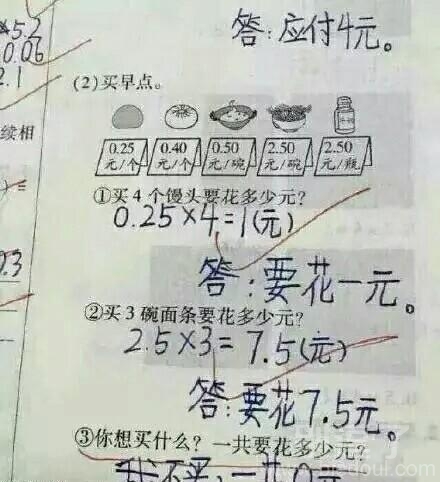 ×5.2
0.06
2.1
答:应付4元。
(2)买早点。
续相
0.25 0.40 0.50 2.50 2.50
元/个 元/个 元/碗 元/碗 元/瓶
①买4个馒头要花多少元?
0.25×4=1(元)
0.3
答:要花一元。
②买3碗面条要花多少元?
2.5×3=7.5(元)
答:要花7.5元。
③你想买什么?一共要花多少元?
我不买,一共0元